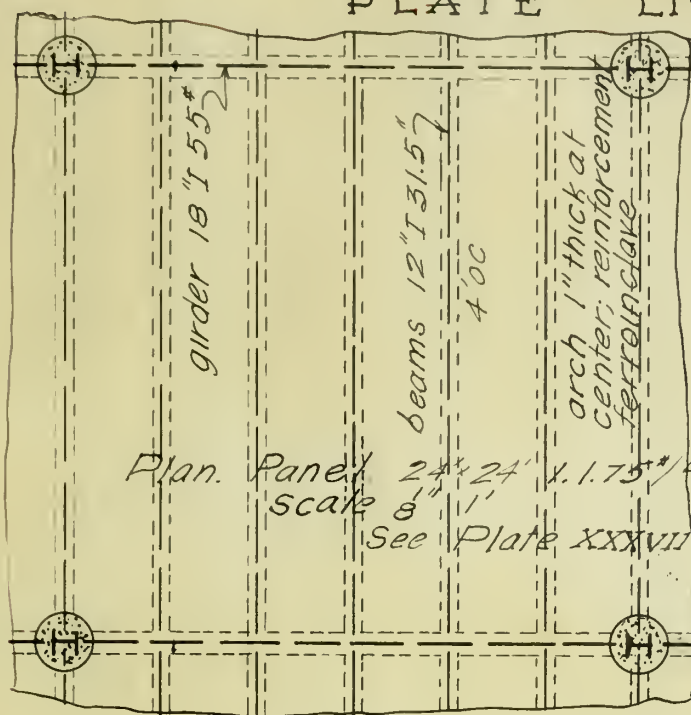 PLATE
girder 18"I 55#
beams 12"I 31.5"
4'OC
arch 1" thick at
center; reinforcement
ferroinclave
Plan. Panel 24'x24' l.l.75#/
scale 8" 1'
See Plate XXXVII